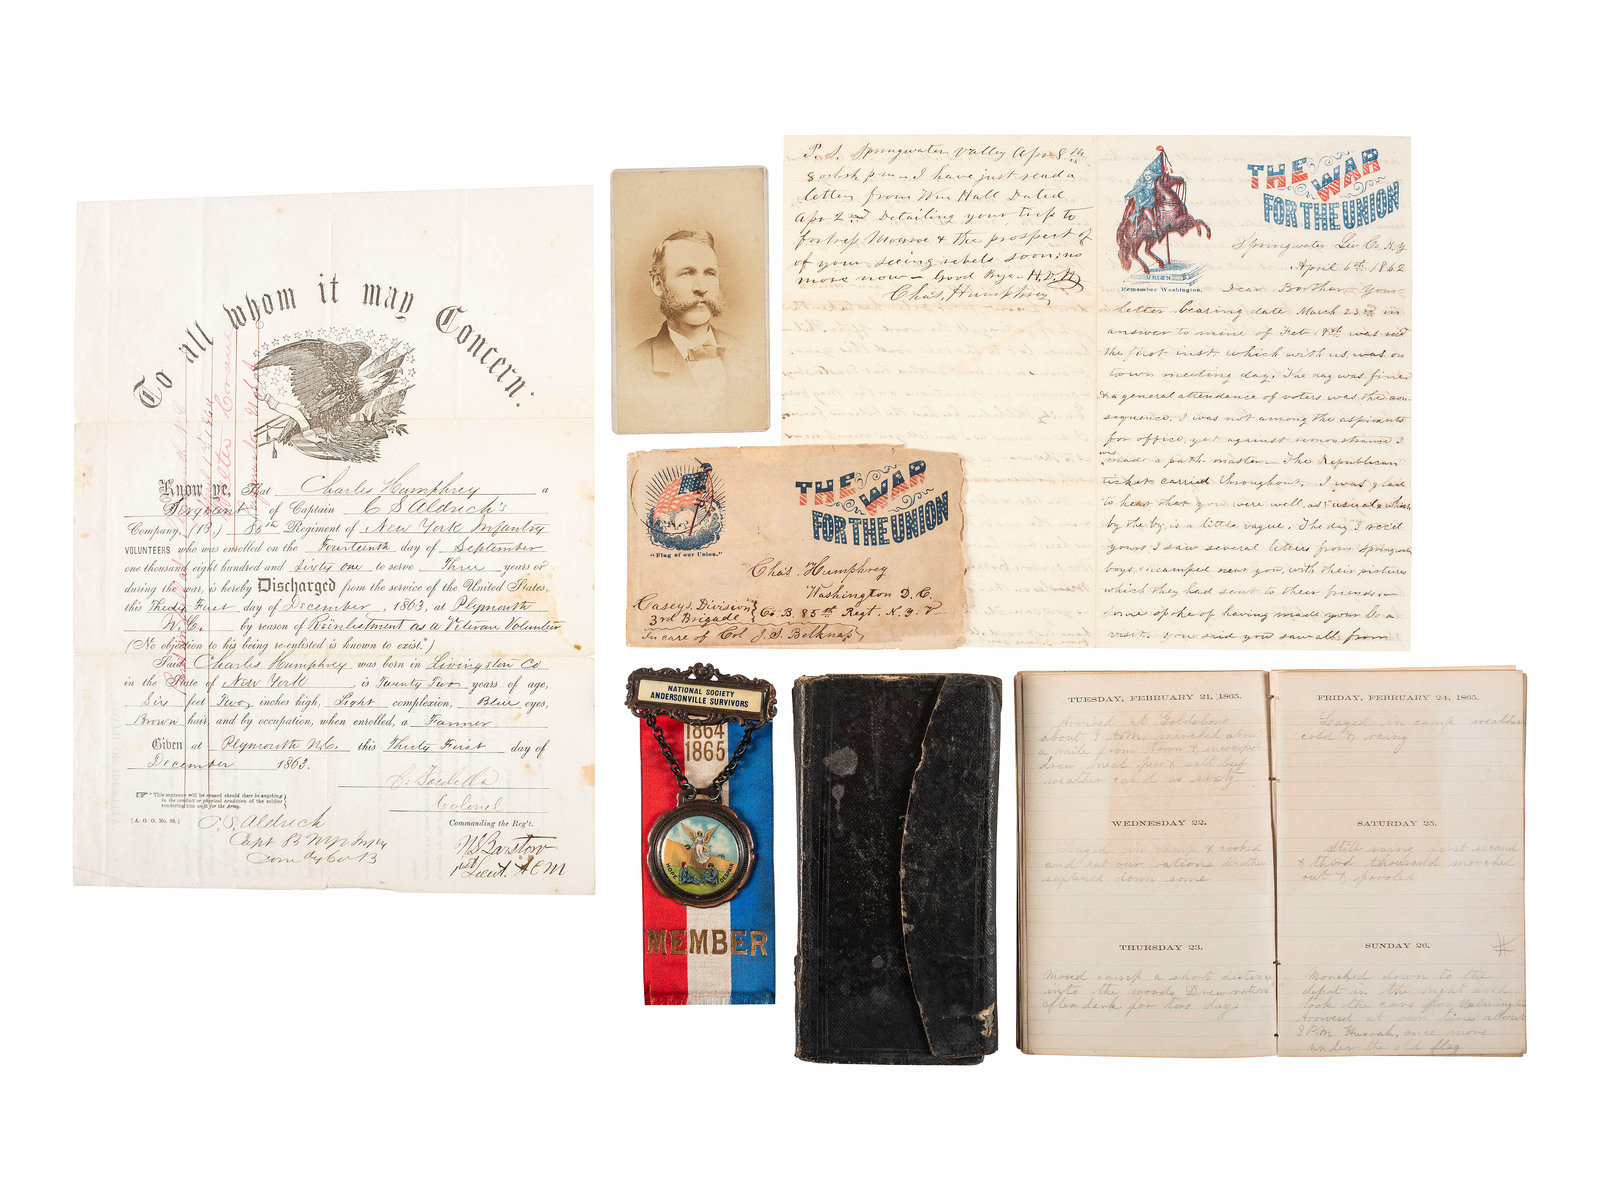 To all whom it may Concern:
Know ye, That Charles Humphrey a
Sergeant of Captain C S Aldrich's
Company, (B.) 85th Regiment of New York Infantry
VOLUNTEERS who was enrolled on the Fourteenth day of September
one thousand eight hundred and Sixty one to serve Three years or
during the war, is hereby Discharged from the service of the United States,
this Thirty First day of December, 1863, at Plymouth
N.C. by reason of Reinlistment as a Veteran Volunteer
(No objection to his being re-enlisted is known to exist.*)
Said Charles Humphrey was born in Livingston Co
in the State of New York is Twenty Two years of age,
Six feet Two inches high, Light complexion, Blue eyes,
Brown hair, and by occupation, when enrolled, a Farmer
Given at Plymouth N.C. this Thirty First day of
December 1863.
Colonel
Commanding the Reg't.
* This sentence will be erased should there be anything
in the conduct or physical condition of the soldier
rendering him unfit for the Army.
[A. G. O. No. 99.]
C. S. Aldrich
Capt 85 N.Y.
Comdg Co B
1st Lieut. A C M
P. S. Springwater Valley Apr 8th
8 oclock p m — I have just read a
letter from Wm Hall Dated
Apr 2nd Detailing your trip to
fortress Monroe & the prospect of
of your seeing rebels soon; no
more now — Good Bye — H.D.H
Chas, Humphrey
THE WAR
FOR THE UNION
UNION
Remember Washington.
Springwater Liv. Co. N.Y.
April 6th 1862
Dear Brother, Your
letter bearing date March 23rd in
answer to mine of Feb. was rec'd
the first inst. which with us was on
town meeting day. The day was fine
& a general attendance of voters was the con
sequence. I was not among the aspirants
for office, yet against remonstrance I
was made a path master — The Republican
ticket carried throughout. I was glad
to hear that you were well, as usual, which
by the by, is a little vague. The day I rec'd
yours I saw several letters from Springwater
boys encamped near you, with their pictures
which they had sent to their friends —
some spoke of having made you a
visit. you said you saw all from
"Flag of our Union."
THE WAR
FOR THE UNION
Chas. Humphrey
Washington D. C.
Casey's Division
3rd Brigade
Co. B. 85th Regt. N. Y. V
In care of Col J. S. Belknap
NATIONAL SOCIETY
ANDERSONVILLE SURVIVORS
1864
1865
MEMBER
TUESDAY, FEBRUARY 21, 1865.
Arrived at Goldsboro
about 9 A.M. marched about
a mile from town & encamped
drew meal peas & salt beef
weather cold as
WEDNESDAY 22.
& cooked
and eat our rations weather
softened down some
THURSDAY 23.
Moved camp a short distance
into the woods Drew rations
after dark for two days
FRIDAY, FEBRUARY 24, 1865.
Layed in camp weather
cold & rainy
SATURDAY 25.
Still raing first second
& third thousand marched
out & paroled
SUNDAY 26.
Marched down to the
depot in the night and
took the cars for Wilmington
Arrived at our lines about
3 P.M. Hurrah, once more
under the old flag